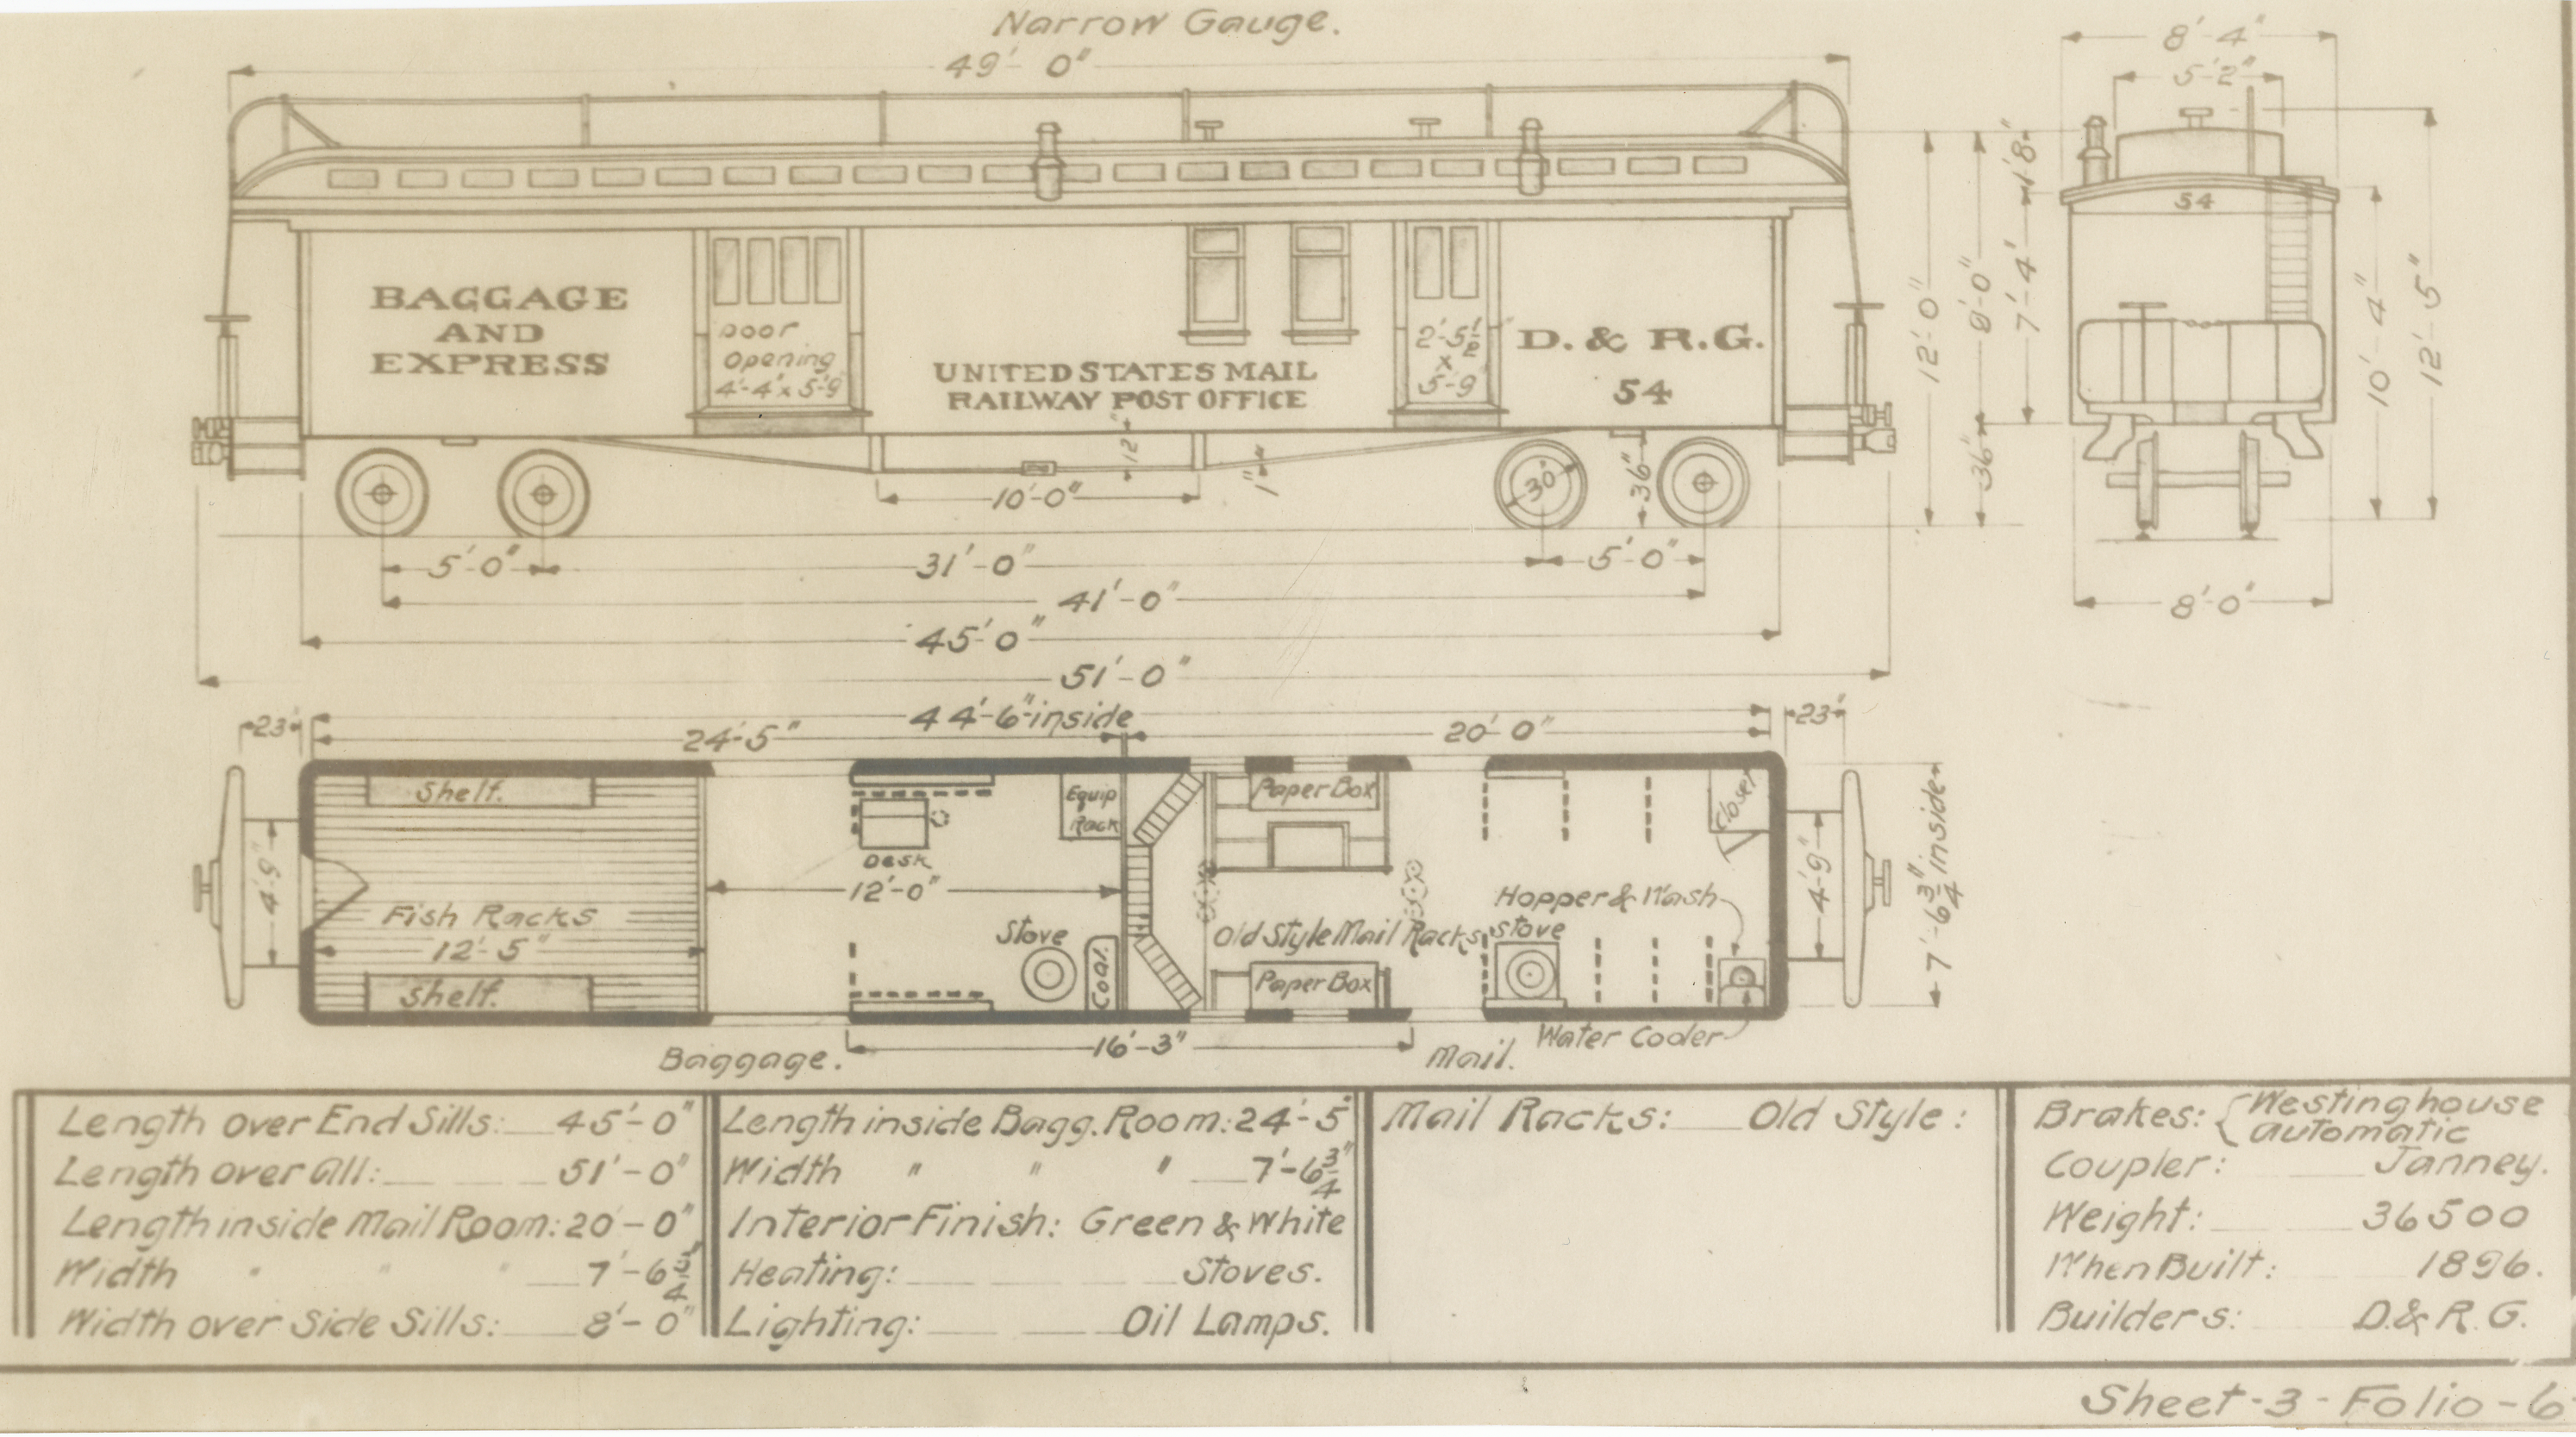 Narrow Gauge.
49'-0"
8'-4"
5'-2"
BAGGAGE
AND
EXPRESS
Door
Opening
4'-4" x 5'-9"
UNITED STATES MAIL
RAILWAY POST OFFICE
2'-5½"
x
5'-9"
D. & R.G.
54
12"
10'-0"
1"
30"
36"
12'-0"
9'-0"
36"
7'-4"
1'-8"
54
10'-4"
12'-5"
8'-0"
5'-0"
31'-0"
5'-0"
41'-0"
45'-0"
51'-0"
44'-6" inside
23"
24'-5"
20'-0"
23"
Shelf.
4'-9"
Fish Racks
12'-5"
Shelf.
Desk
12'-0"
Equip
Rack
Stove
Coal.
Paper Box
Old Style Mail Racks
Paper Box
Stove
Hopper & Wash
Closet
4'-9"
7'-6¾" inside
Water Cooler
Baggage.
16'-3"
Mail.
Length over End Sills: 45'-0"
Length over all: 51'-0"
Length inside Mail Room: 20'-0"
Width " " " 7'-6¾"
Width over Side Sills: 8'-0"
Length inside Bagg. Room: 24'-5"
Width " " " 7'-6¾"
Interior Finish: Green & White
Heating: Stoves.
Lighting: Oil Lamps.
Mail Racks: Old Style:
Brakes: {Westinghouse
automatic
Coupler: Janney.
Weight: 36500
When Built: 1896.
Builders: D.& R.G.
Sheet-3-Folio-6